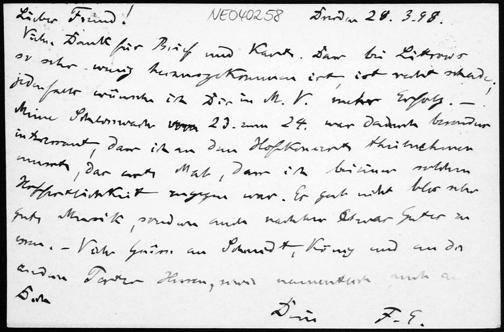 Lieber Freund! NEO40258 Dresden 28.3.98.
Viele Dank für Brief und Karte. Dass bei Littrows
so sehr wenig herausgekommen ist, ist recht schade;
jedenfalls wünsche ich Dir in M. V. mehr Erfolg. –
Meine Schlosswache vom 23. zum 24. war dadurch besonders
interessant, dass ich an dem Hofkonzert theilnehmen
musste, das erste Mal, dass ich bei einer solchen
Hoffestlichkeit zugegen war. Es gab nicht blos sehr
gute Musik, sondern auch nachher etwas Gutes zu
essen. – Viele Grüsse an Schmidt, König und an die
andern Herren, sowie namentlich auch an
Dich
Dein F. E.